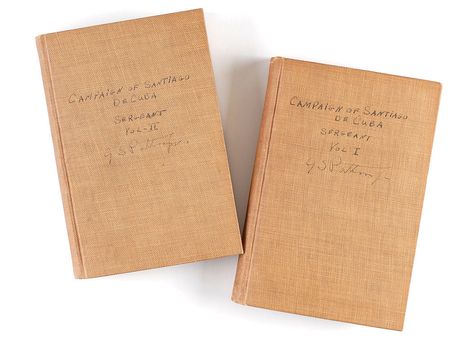 CAMPAIGN OF SANTIAGO
DE CUBA
SERGEANT
VOL-II
G S Patton Jr.
CAMPAIGN OF SANTIAGO
DE CUBA
SERGEANT
VOL I
G S Patton Jr